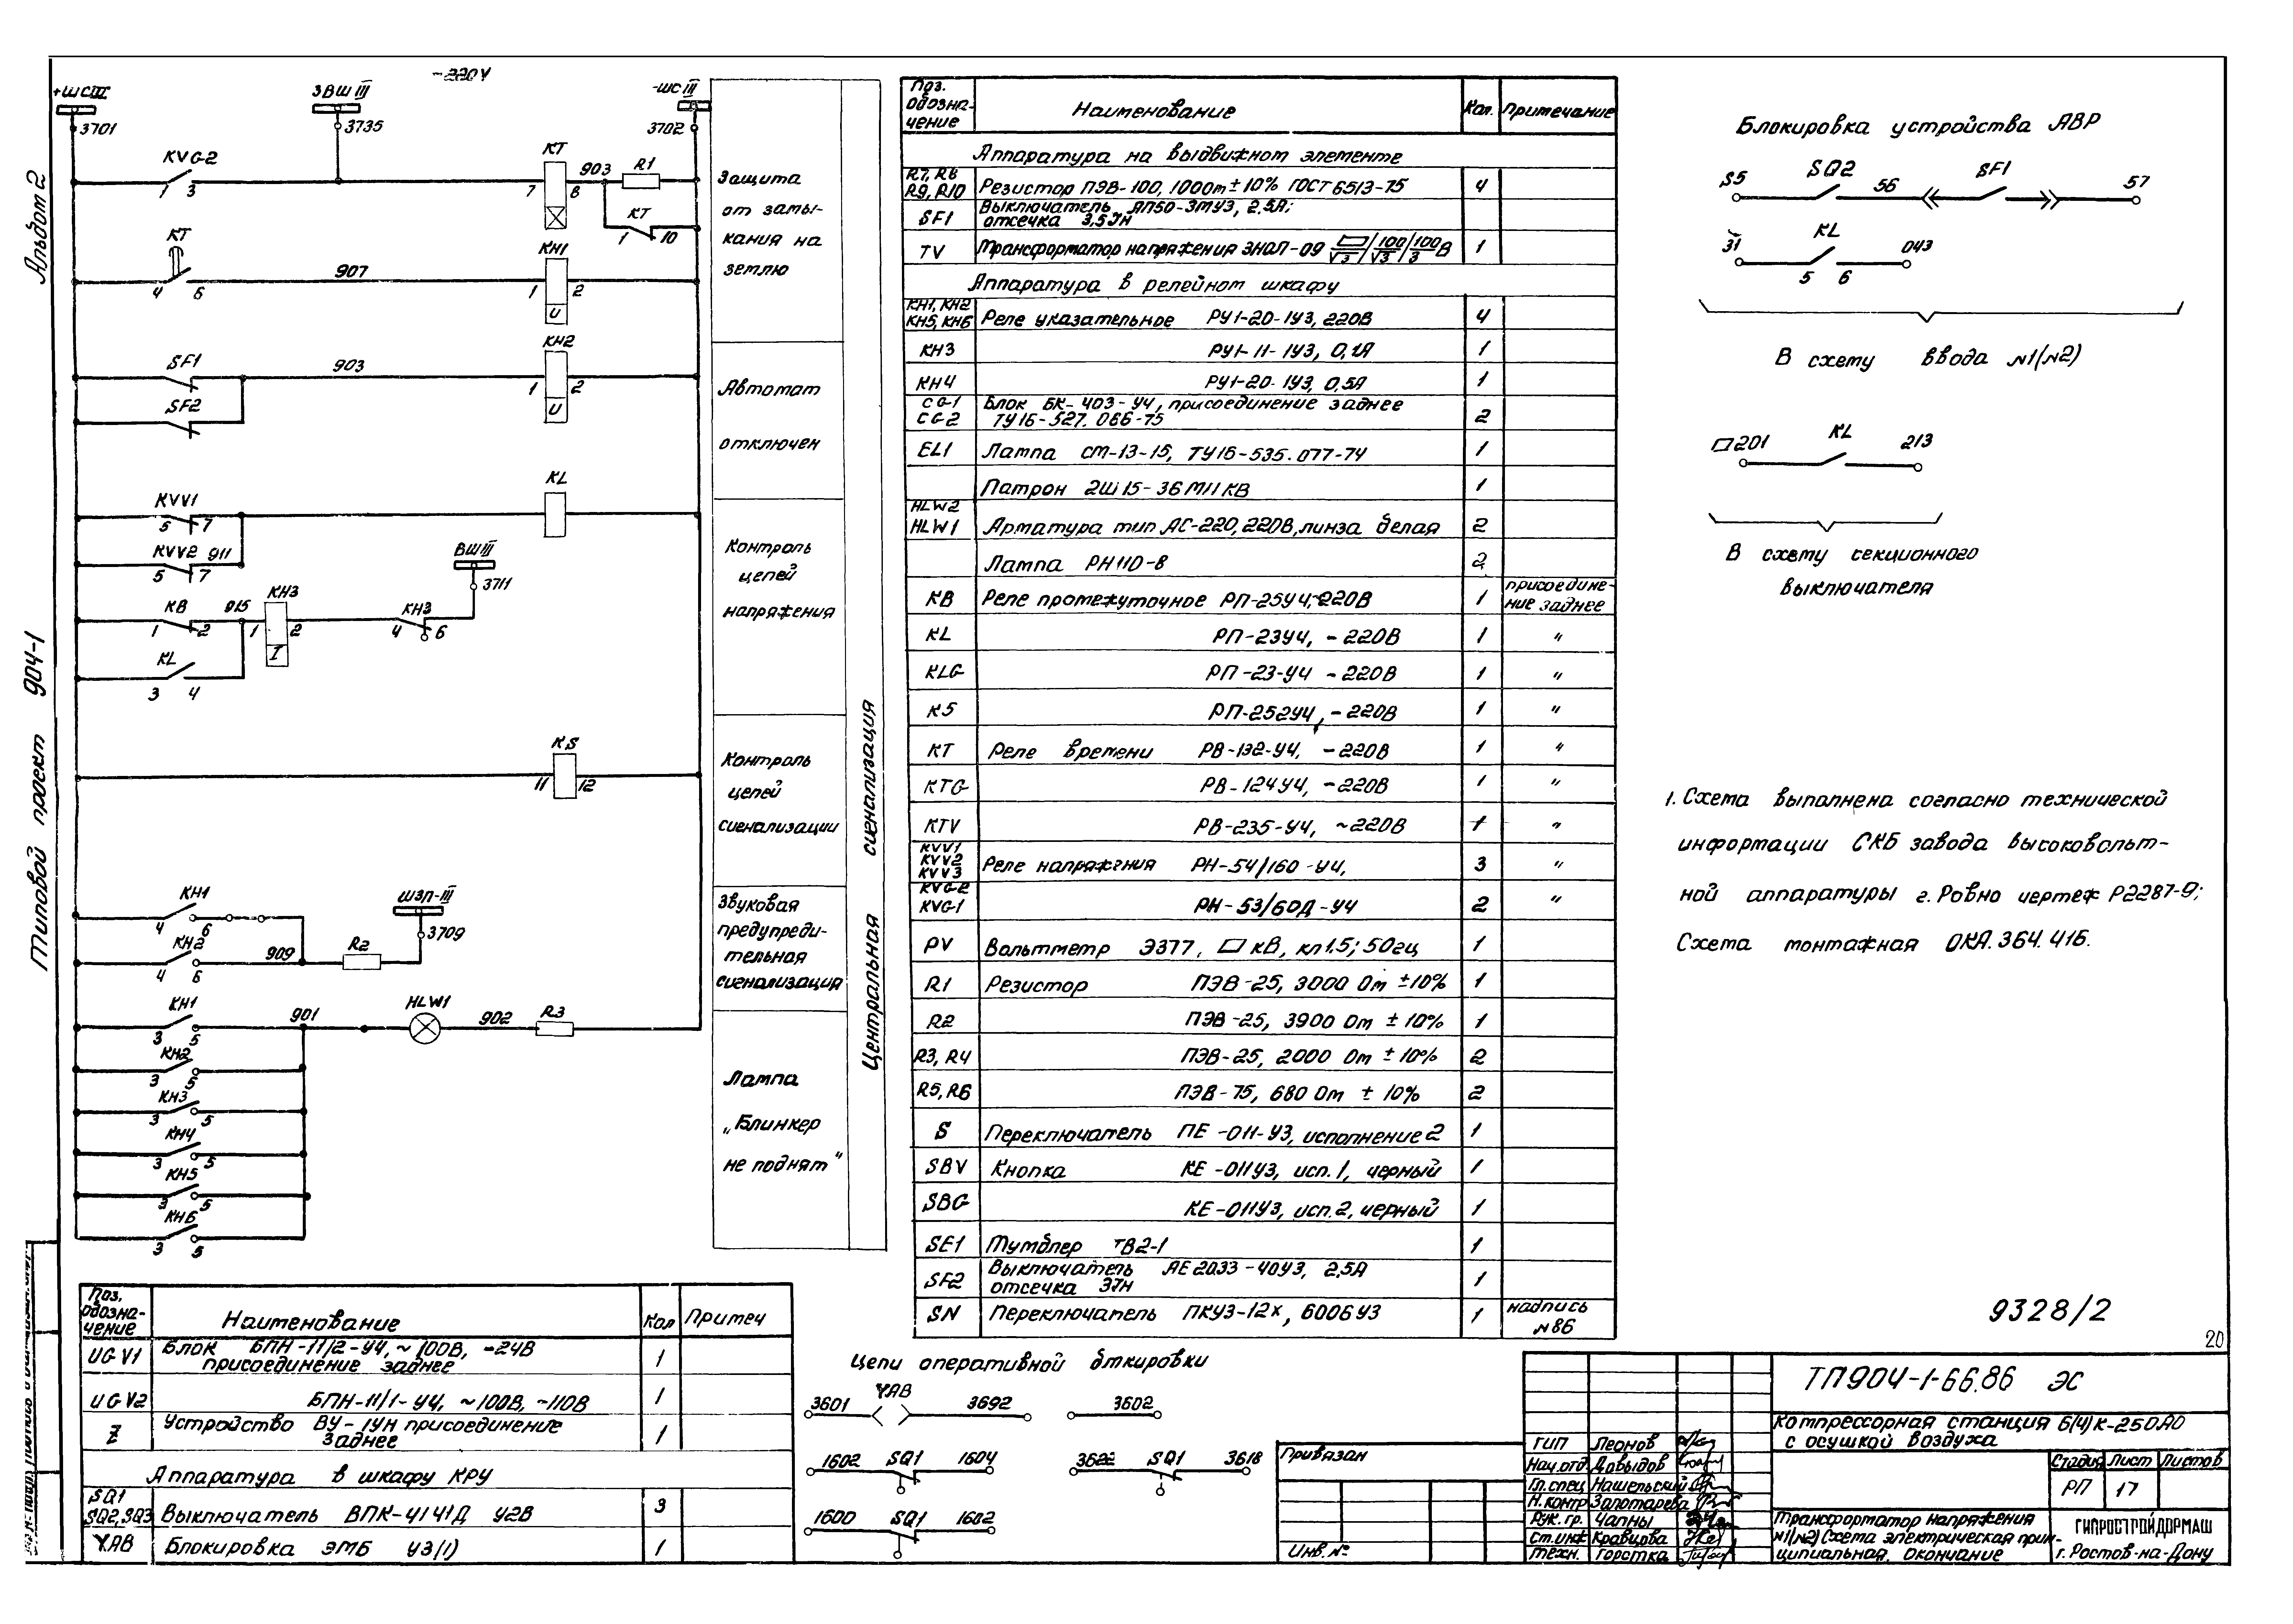 Альбом 2
Типовой проект 904-1
-220V
+ШС III
ЗВШ III
-ШС III
3701
3735
3702
KVG-2
1 3
KT
7 8
903
R1
KT
1 10
Защита
от замы-
кания на
землю
KT
4 6
907
KH1
1 2
U
SF1
903
KH2
1 2
U
SF2
Автомат
отключен
KVV1
5 7
KL
KVV2 911
5 7
ВШ III
3711
KB
1 2
915
KH3
1 2
I
KH3
4 6
KL
3 4
Контроль
цепей
напряжения
KS
11 12
Контроль
цепей
сигнализации
KH1
4 6
KH2
4 6
909
R2
ШЗП-III
3709
Звуковая
предупреди-
тельная
сигнализация
KH1
3 5
901
HLW1
902
R3
KH2
3 5
KH3
3 5
KH4
3 5
KH5
3 5
KH6
3 5
Лампа
„Блинкер
не поднят"
Центральная сигнализация
Поз. обозна-чение Наименование Кол. Примечание
Аппаратура на выдвижном элементе
R7, R8
R9, R10 Резистор ПЭВ-100, 100Om ± 10% ГОСТ 6513-75 4
SF1 Выключатель АП50-3МУЗ, 2.5А;
отсечка 3,5Iн
TV Трансформатор напряжения ЗНОЛ-09 /√3 / 100/√3 / 100/3 В 1
Аппаратура в релейном шкафу
KH1, KH2
KH5, KH6 Реле указательное РУ1-20-1У3, 220В 4
KH3 РУ1-11-1У3, 0,1А 1
KH4 РУ1-20-1У3, 0,5А 1
CG-1
CG-2 Блок БК-403-У4, присоединение заднее
ТУ16-527.066-75 2
EL1 Лампа СМ-13-15, ТУ16-535.077-74 1
Патрон 2Ш15-36МПКВ 1
HLW2
HLW1 Арматура тип АС-220, 220В, линза белая 2
Лампа РН110-8 2
KB Реле промежуточное РП-25У4, ~220В 1 присоедине-
ние заднее
KL РП-23У4, -220В 1 "
KLG РП-23-У4 -220В 1 "
KS РП-252У4, -220В 1 "
KT Реле времени РВ-132-У4, -220В 1 "
KTG РВ-124У4, -220В 1 "
KTV РВ-235-У4, ~220В 1 "
KVV1
KVV2
KVV3 Реле напряжения РН-54/160-У4, 3 "
KVG-2
KVG-1 РН-53/60Д-У4 2 "
PV Вольтметр Э377, кВ, кл 1.5; 50гц 1
R1 Резистор ПЭВ-25, 3000 Om ±10% 1
R2 ПЭВ-25, 3900 Om ± 10% 1
R3, R4 ПЭВ-25, 2000 Om ± 10% 2
R5, R6 ПЭВ-75, 680 Om ± 10% 2
S Переключатель ПЕ-011-У3, исполнение 2 1
SBV Кнопка КЕ-011У3, исп. 1, черный 1
SBG КЕ-011У3, исп. 2, черный 1
SE1 Тумблер ТВ2-1 1
SF2 Выключатель АЕ2033-40У3, 2,5А
отсечка 3Iн 1
SN Переключатель ПКУ3-12х, 6006У3 1 надпись
N86
Блокировка устройства АВР
55 SQ2 56 SF1 57
31 KL 043
5 6
В схему ввода N1(N2)
201 KL 213
В схему секционного
выключателя
1. Схема выполнена согласно технической
информации СКБ завода высоковольт-
ной аппаратуры г. Ровно чертеж Р2287-9;
Схема монтажная ОКА.364.416.
Поз. обозна-чение Наименование Кол Примеч
UGV1 Блок БПН-11/2-У4, ~100В, -24В
присоединение заднее 1
UGV2 БПН-11/1-У4, ~100В, -110В 1
Z Устройство ВУ-1УН присоединение
заднее 1
Аппаратура в шкафу КРУ
SQ1
SQ2, SQ3 Выключатель ВПК-4141Д У2В 3
YAB Блокировка ЭМБ У3(1) 1
Цепи оперативной блкировки
3601 YAB 3692 3602
1602 SQ1 1604 3622 SQ1 3618
1600 SQ1 1602
Привязан
Инв. №
9328/2
20
ТП904-1-66.86 ЭС
Компрессорная станция 6(4)К-250А0
с осушкой воздуха
ГИП Леонов
Нач.отд. Давыдов
Гл.спец Нашельский
Н.контр Золотарева
Рук. гр. Чапны
Ст.инж Кравцова
Техн. Горстка
Стадия Лист Листов
РП 17
Трансформатор напряжения
N1(N2) Схема электрическая прин-
ципиальная. Окончание
ГИПРОСТРОЙДОРМАШ
г. Ростов-на-Дону